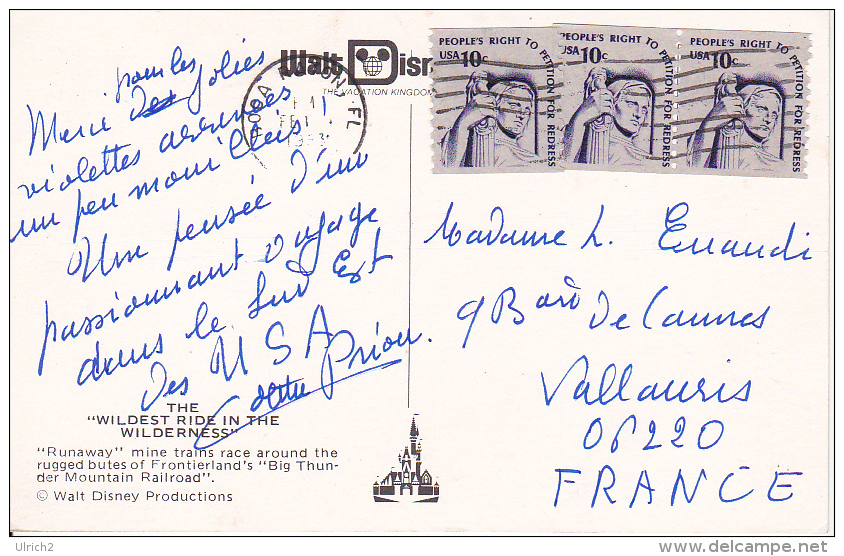 Walt Disn
THE VACATION KINGDOM
BOCA RATON, FL
PEOPLE'S RIGHT TO PETITION FOR REDRESS
USA 10c
PEOPLE'S RIGHT TO PETITION FOR REDRESS
USA 10c
PEOPLE'S RIGHT TO PETITION FOR REDRESS
USA 10c
pour les
Merci des jolies
violettes arrivées
un peu mouillées !
Une pensée d'un
passionnant voyage
dans le Sud Est
des USA
Prion.
Madame L. Einaudi
9 Bard de Cannes
Vallauris
06220
FRANCE
THE
"WILDEST RIDE IN THE
WILDERNESS"
"Runaway" mine trains race around the
rugged butes of Frontierland's "Big Thun-
der Mountain Railroad".
© Walt Disney Productions
Ulrich2
www.delcampe.net